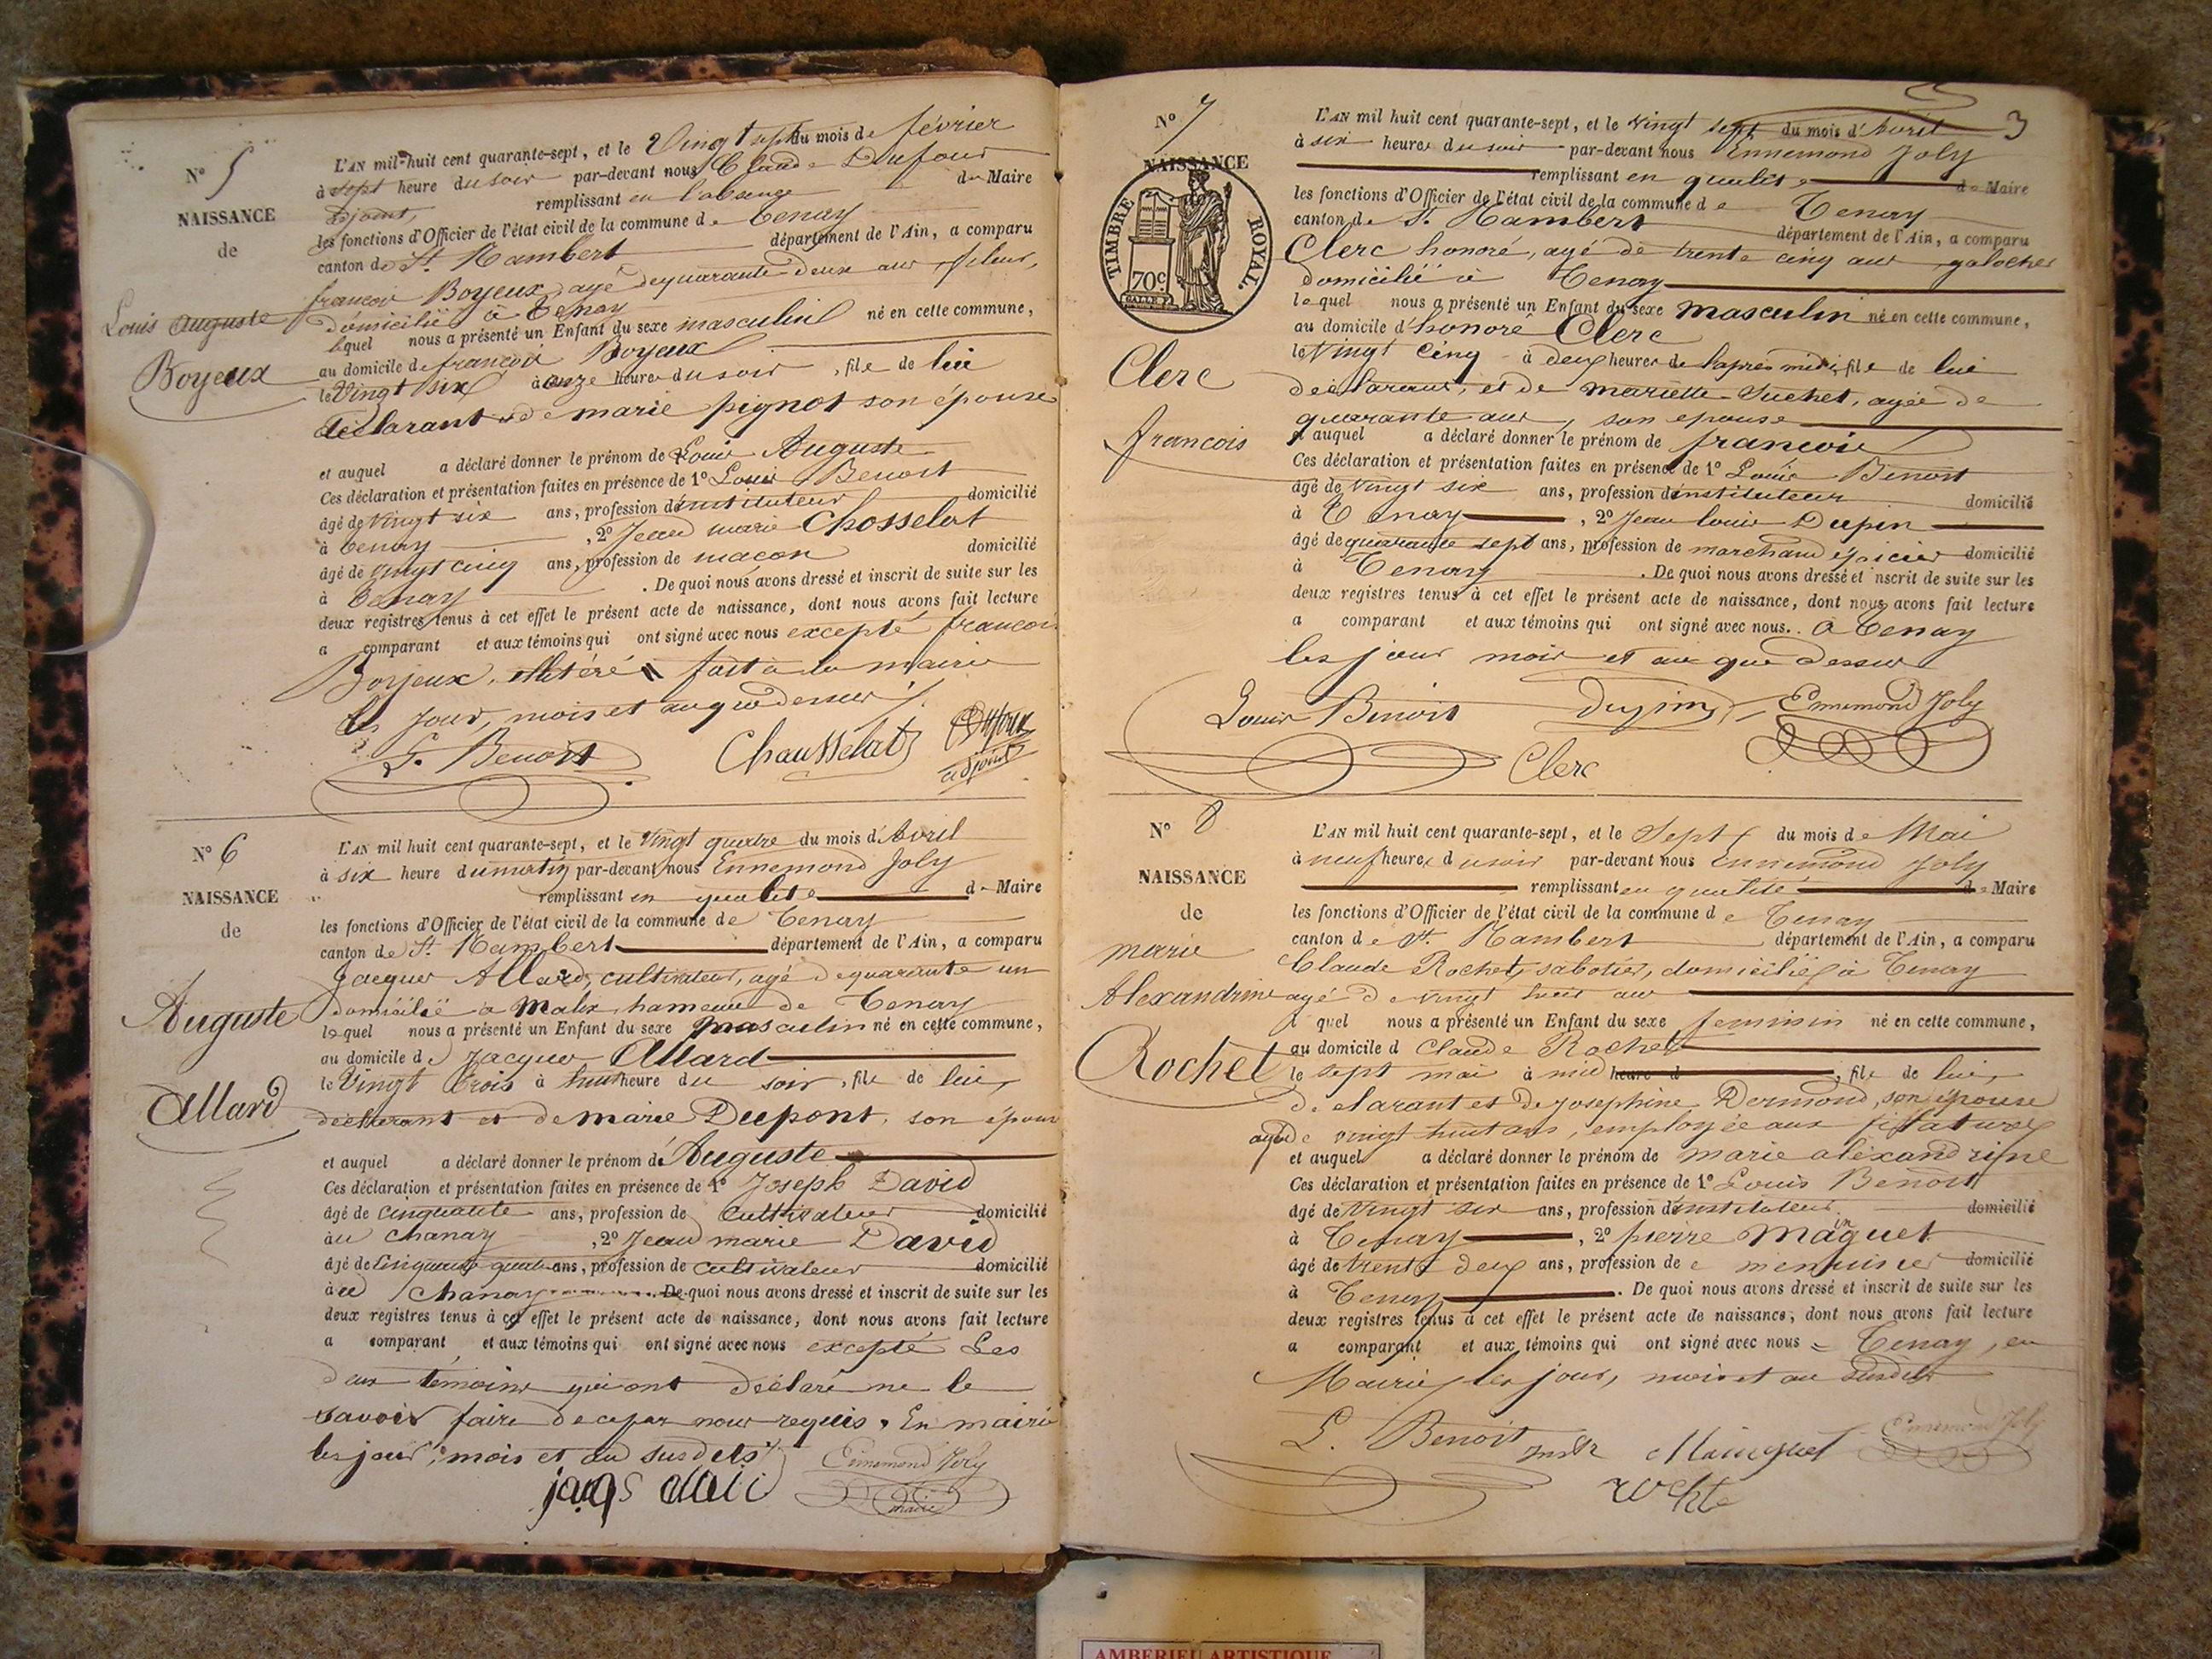 N° 5
NAISSANCE
de
Louis Auguste
Boyeux
L'AN mil-huit cent quarante-sept, et le Vingt sept du mois de février
à sept heure du soir par-devant nous Claude Dufour
adjoint, remplissant en l'absence du Maire
les fonctions d'Officier de l'état civil de la commune de Tenay
canton de St. Rambert département de l'Ain, a comparu
francois Boyeux, agé de quarante deux ans, fileur,
domicilié à Tenay
lequel nous a présenté un Enfant du sexe masculin né en cette commune,
au domicile de françois Boyeux
le Vingt six à onze heure du soir, fils de lui
déclarant et de marie pignot son épouse
et auquel a déclaré donner le prénom de Louis Auguste
Ces déclaration et présentation faites en présence de 1° Louis Benoit
âgé de vingt six ans, profession d'instituteur domicilié
à Tenay, 2° Jean marie Chosselat
âgé de vingt cinq ans, profession de maçon domicilié
à Tenay. De quoi nous avons dressé et inscrit de suite sur les
deux registres tenus à cet effet le présent acte de naissance, dont nous avons fait lecture
a comparant et aux témoins qui ont signé avec nous excepté francois
Boyeux, fait à la mairie
les jour, mois et an que dessus
L. Benoit Chausselat Dufour
adjoint
N° 6
NAISSANCE
de
Auguste
Allard
L'AN mil huit cent quarante-sept, et le vingt quatre du mois d'Avril
à six heure du matin par-devant nous Ennemond Joly
remplissant en qualité de Maire
les fonctions d'Officier de l'état civil de la commune de Tenay
canton de St. Rambert département de l'Ain, a comparu
Jacques Allard, cultivateur, agé de quarante un
domicilié à Malix hameau de Tenay
lequel nous a présenté un Enfant du sexe masculin né en cette commune,
au domicile de Jacques Allard
le Vingt trois à huit heure du soir, fils de lui,
déclarant et de marie Dupont, son épouse
et auquel a déclaré donner le prénom de Auguste
Ces déclaration et présentation faites en présence de 1° Joseph David
âgé de cinquante ans, profession de cultivateur domicilié
au chanay, 2° Jean marie David
âgé de cinquante quatre ans, profession de cultivateur domicilié
au chanay. De quoi nous avons dressé et inscrit de suite sur les
deux registres tenus à cet effet le présent acte de naissance, dont nous avons fait lecture
a comparant et aux témoins qui ont signé avec nous excepté Les
deux témoins qui ont déclaré ne le
savoir faire de ce par nous requis. En mairie
les jour, mois et an susdits
Ennemond Joly
maire
N° 7
3
NAISSANCE
TIMBRE ROYAL
70c
Clerc
francois
L'AN mil huit cent quarante-sept, et le vingt sept du mois d'Avril
à six heures du soir par-devant nous Ennemond Joly
remplissant en qualité de Maire
les fonctions d'Officier de l'état civil de la commune de Tenay
canton de St. Rambert département de l'Ain, a comparu
Clerc honoré, agé de trente cinq ans galocher
domicilié à Tenay
lequel nous a présenté un Enfant du sexe masculin né en cette commune,
au domicile d'honoré Clerc
le Vingt Cinq à deux heures de l'apres midi, fils de lui
déclarant, et de mariette Suchet, agée de
quarante ans, son epouse
et auquel a déclaré donner le prénom de francois
Ces déclaration et présentation faites en présence de 1° Louis Benoit
âgé de vingt six ans, profession d'instituteur domicilié
à Tenay, 2° Jean louis Dupin
âgé de quarante sept ans, profession de marchand épicier domicilié
à Tenay. De quoi nous avons dressé et inscrit de suite sur les
deux registres tenus à cet effet le présent acte de naissance, dont nous avons fait lecture
a comparant et aux témoins qui ont signé avec nous. à Tenay
les jour mois et an que dessus
Louis Benoit Dupin Ennemond Joly
Clerc
N° 8
NAISSANCE
de
marie
Alexandrine
Rochet
L'AN mil huit cent quarante-sept, et le Sept du mois de Mai
à neuf heures du soir par-devant nous Ennemond Joly
remplissant en qualité de Maire
les fonctions d'Officier de l'état civil de la commune de Tenay
canton de St. Rambert département de l'Ain, a comparu
Claude Rochet, sabotier, domicilié à Tenay
agé de vingt huit ans
lequel nous a présenté un Enfant du sexe feminin né en cette commune,
au domicile d Claude Rochet
le sept mai à midi heure d, fils de lui,
déclarant et de josephine Dermond, son épouse
agée de vingt huit ans, employée aux filatures
et auquel a déclaré donner le prénom de marie alexandrine
Ces déclaration et présentation faites en présence de 1° Louis Benoit
âgé de vingt six ans, profession d'instituteur domicilié
à Tenay, 2° pierre Mainguet
âgé de trente deux ans, profession de menuisier domicilié
à Tenay. De quoi nous avons dressé et inscrit de suite sur les
deux registres tenus à cet effet le présent acte de naissance, dont nous avons fait lecture
a comparant et aux témoins qui ont signé avec nous à Tenay, en
Mairie, les jour, mois et an susdits
L. Benoit instr Mainguet Ennemond Joly
AMBERIEU ARTISTIQUE